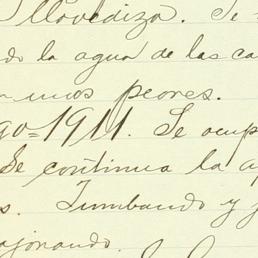 Llovediza. Se
do la agua de las ca
unos peores.
go=1911. Se ocup
Se continua la a
s. Tumbando y j
ajonando.